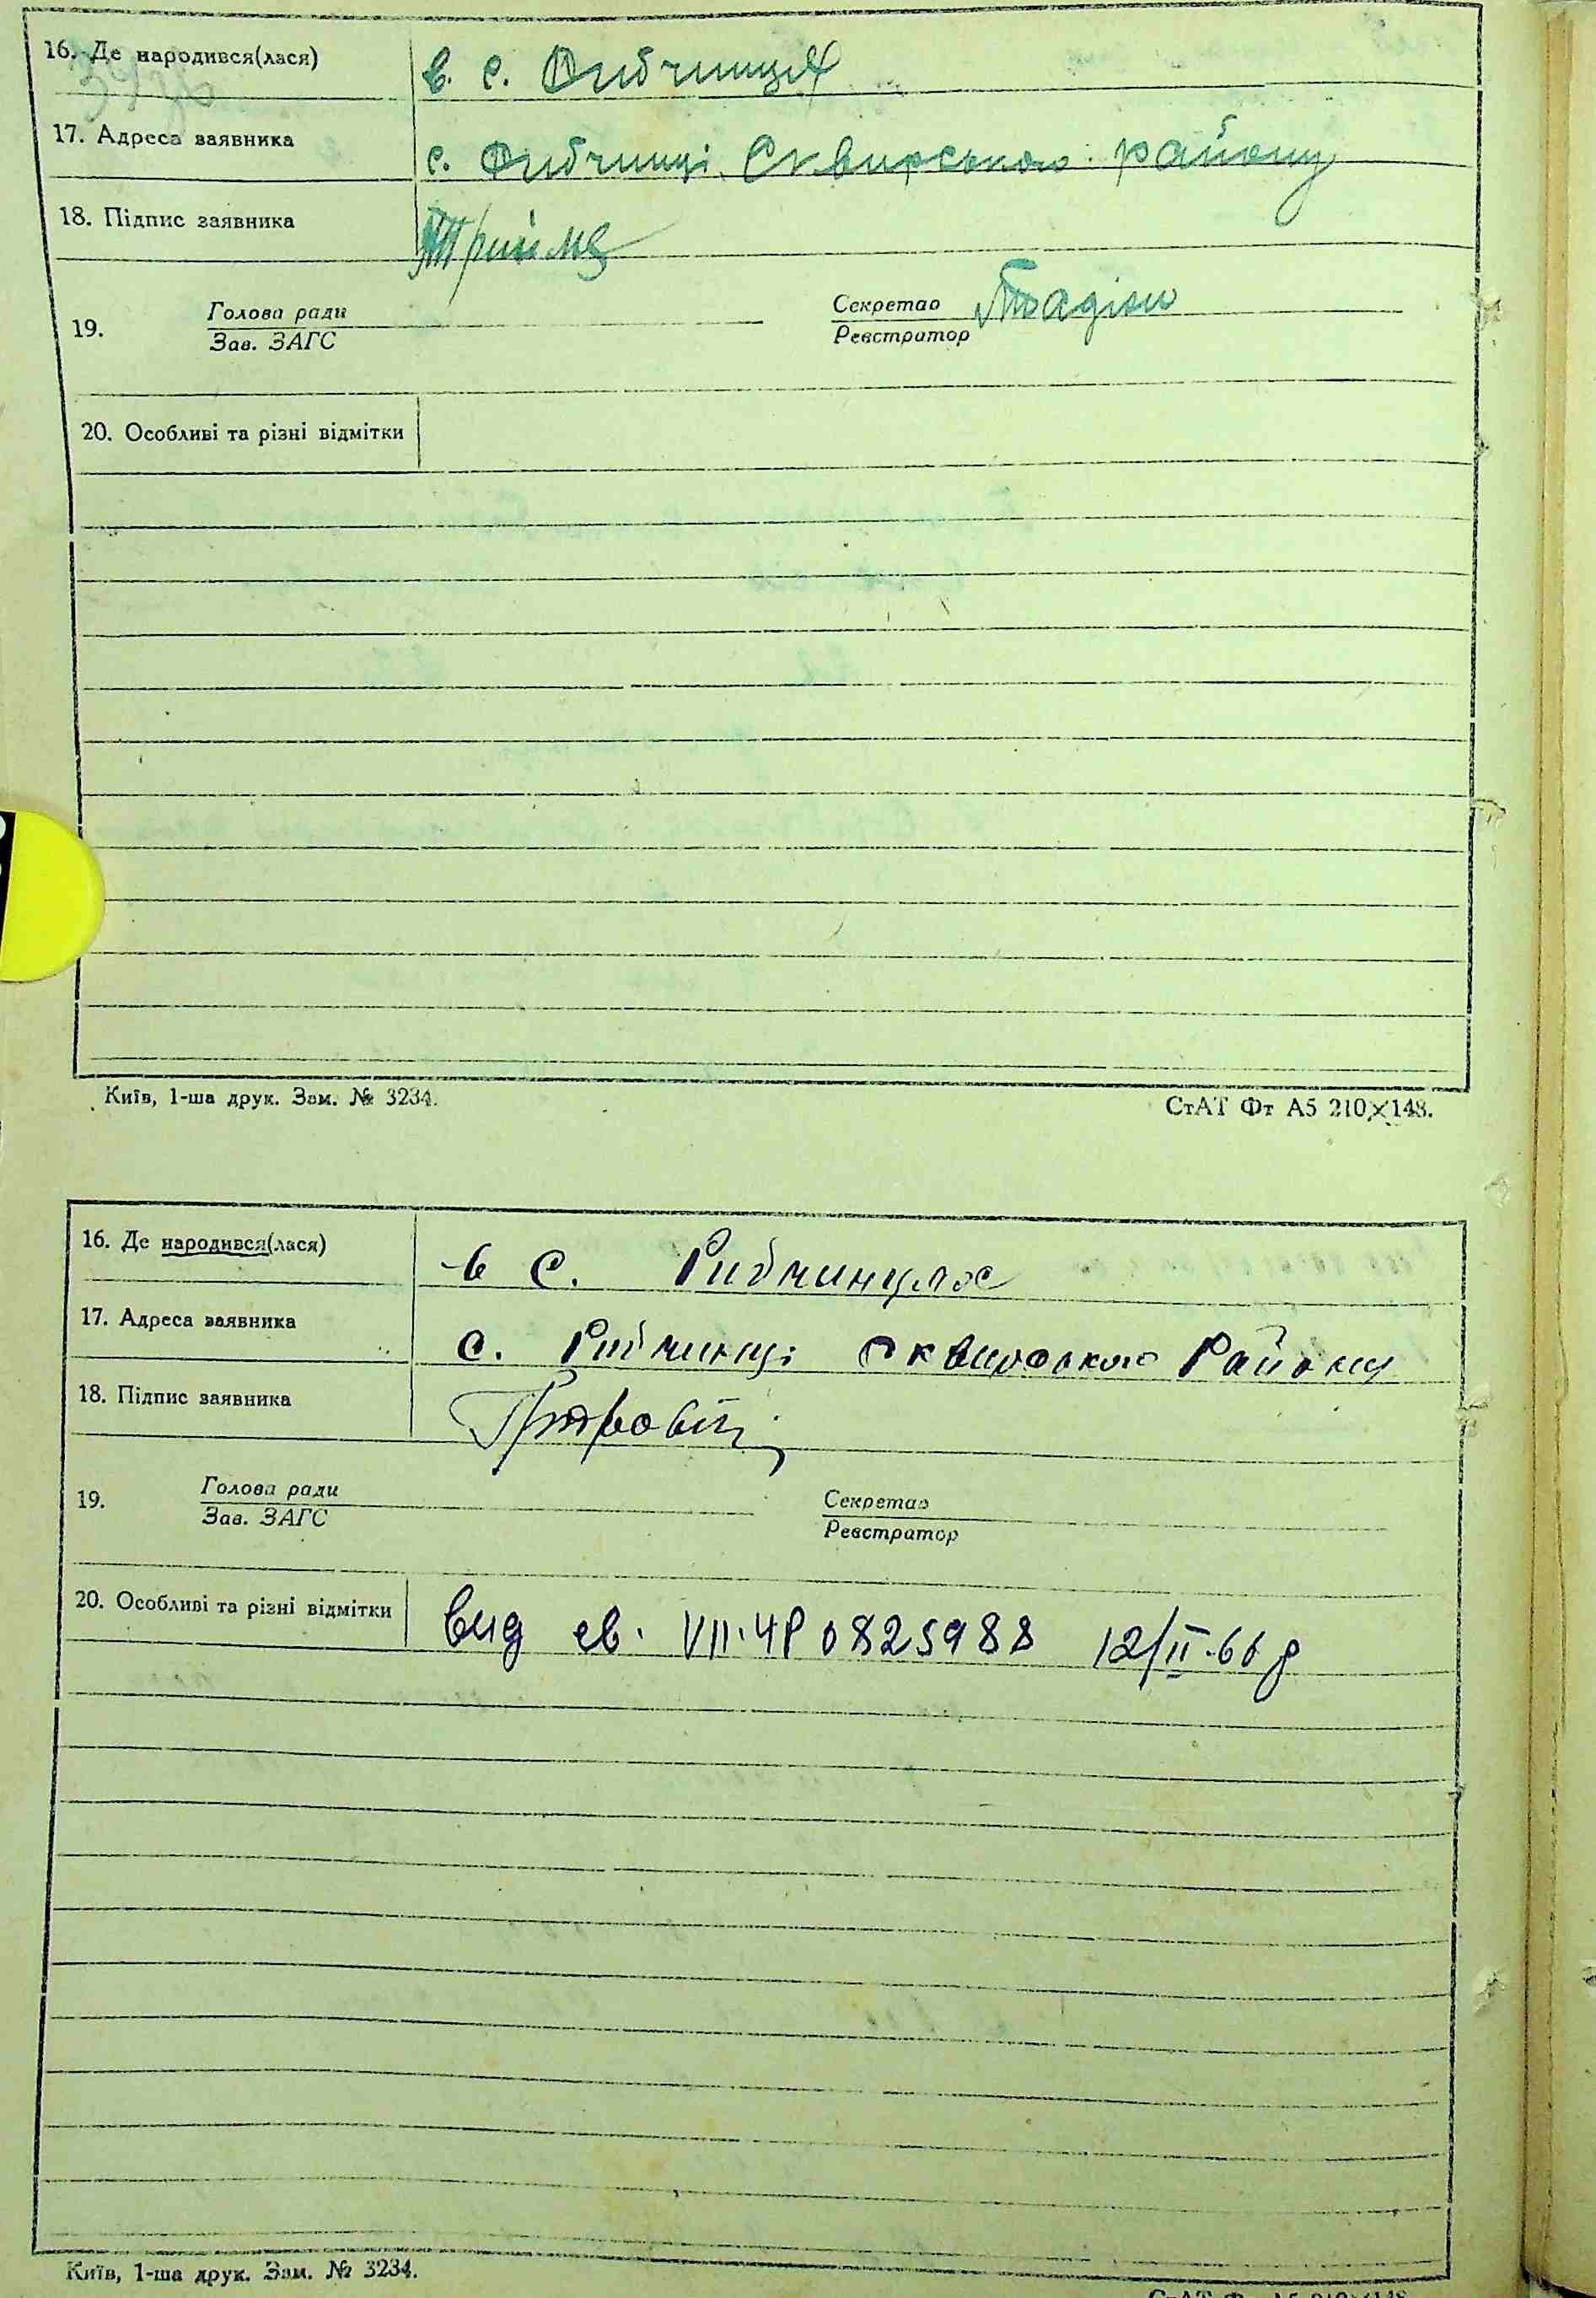 16. Де народився(лася)
в. с. Рибчинцях
17. Адреса заявника
с. Рибчинці Сквирського району
18. Підпис заявника
19. Голова ради
Зав. ЗАГС
Секретар
Реєстратор
20. Особливі та різні відмітки
Київ, 1-ша друк. Зам. № 3234.
СтАТ Фт А5 210×148.
16. Де народився(лася)
в с. Рибчинцях
17. Адреса заявника
с. Рибчинці Сквирського Району
18. Підпис заявника
19. Голова ради
Зав. ЗАГС
Секретар
Реєстратор
20. Особливі та різні відмітки
вид св. VII-ЧР 0825988 12/II-66 р
Київ, 1-ша друк. Зам. № 3234.